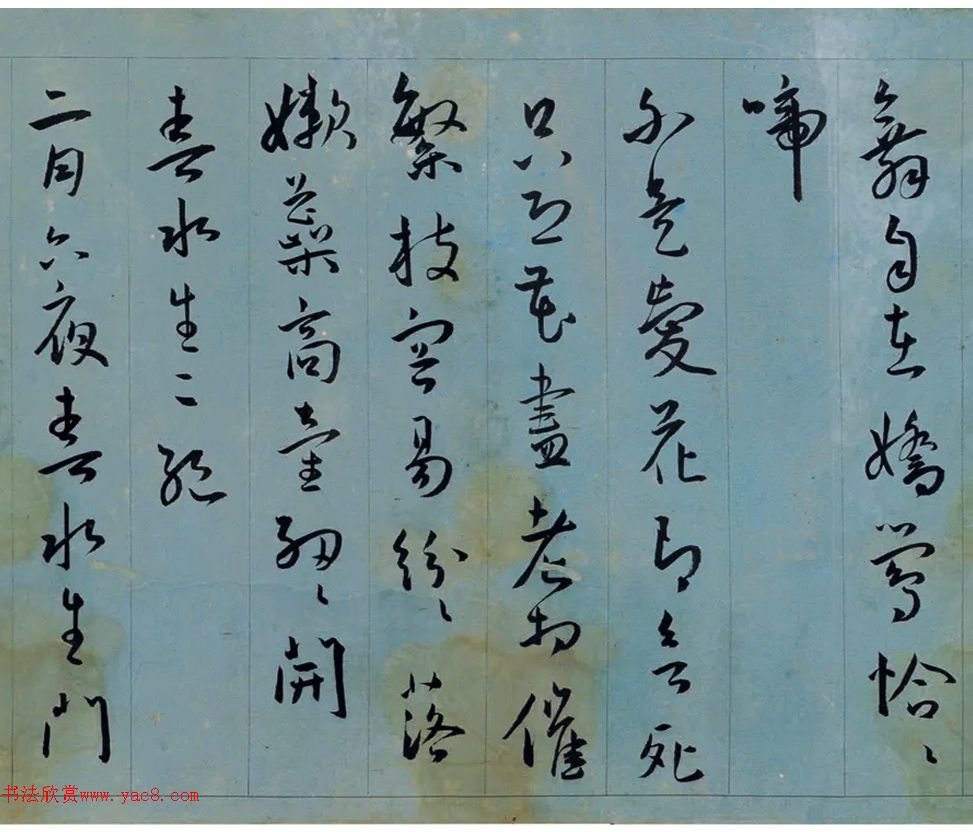 舞自在嬌鶯恰〻
啼
不是愛花即欲死
只恐花盡老相催
繁枝容易紛〻落
嫩蘂高量細〻開
春水生二絶
二月六夜春水生門
书法欣赏www.yac8.com